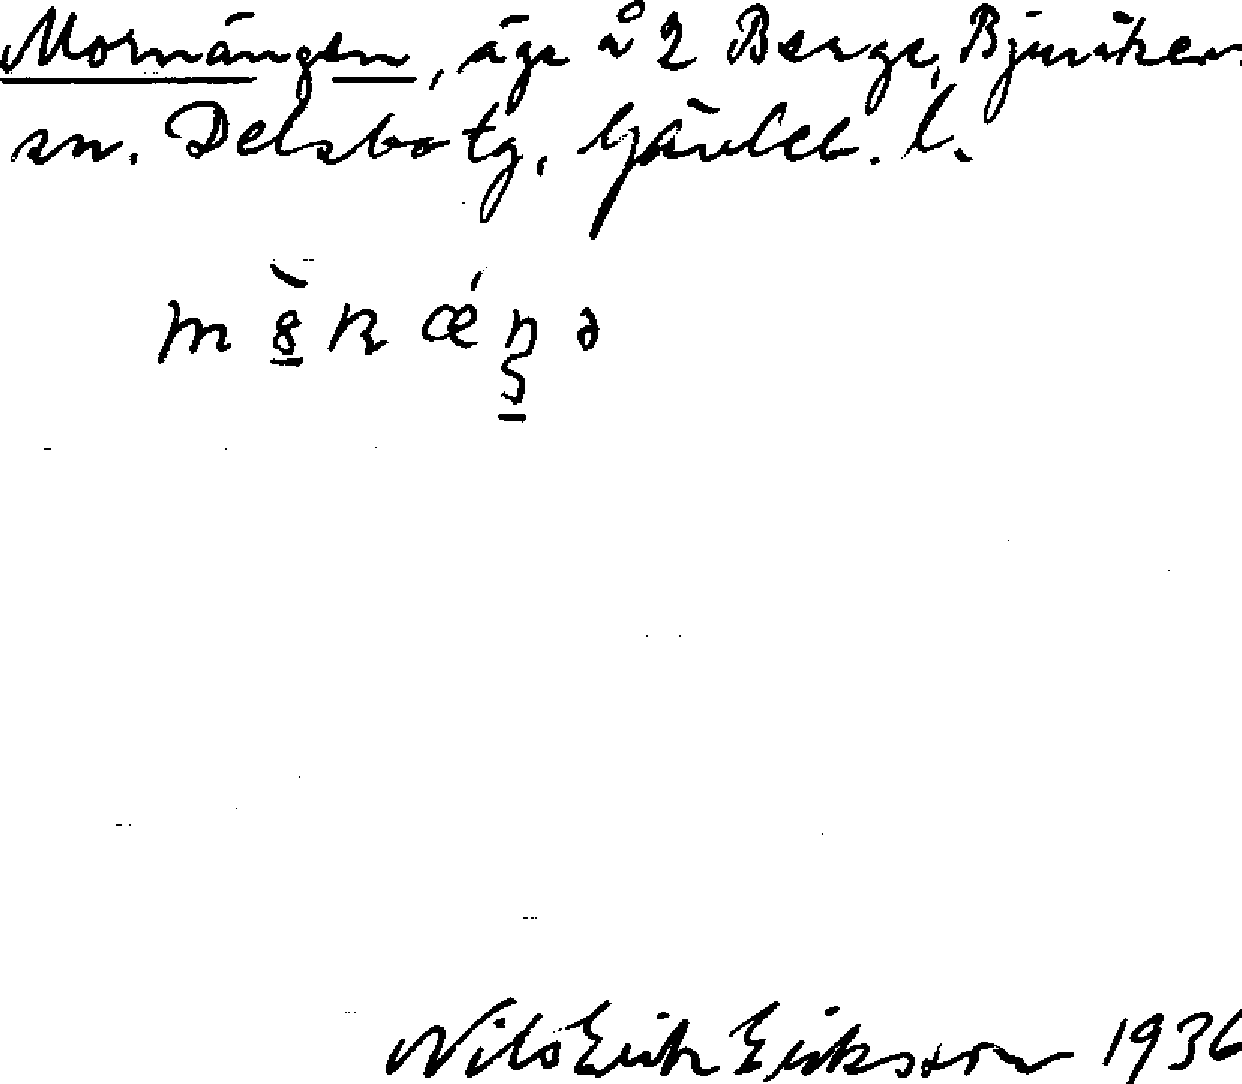 Mornängen, äga å 2 Berge, Bjuråker
sn. Delsbo tg, Gävleb. l.
Nils Erik Eriksson 1936